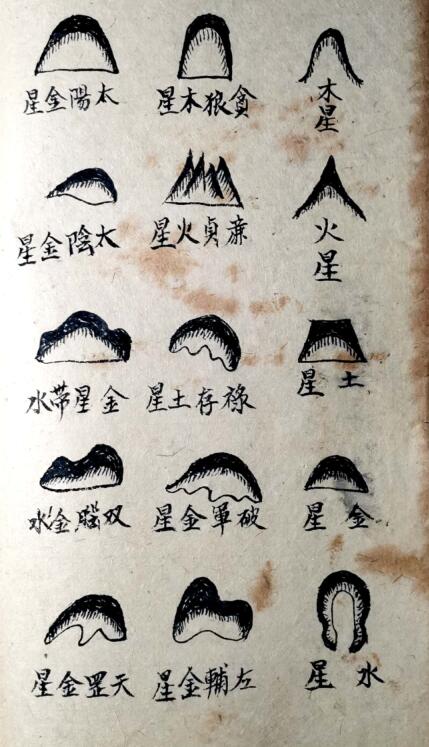 木星
火星
土星
金星
水星
貪狼木星
廉貞火星
祿存土星
破軍金星
左輔金星
太陽金星
太陰金星
金星帶水
双腦金水
天罡金星